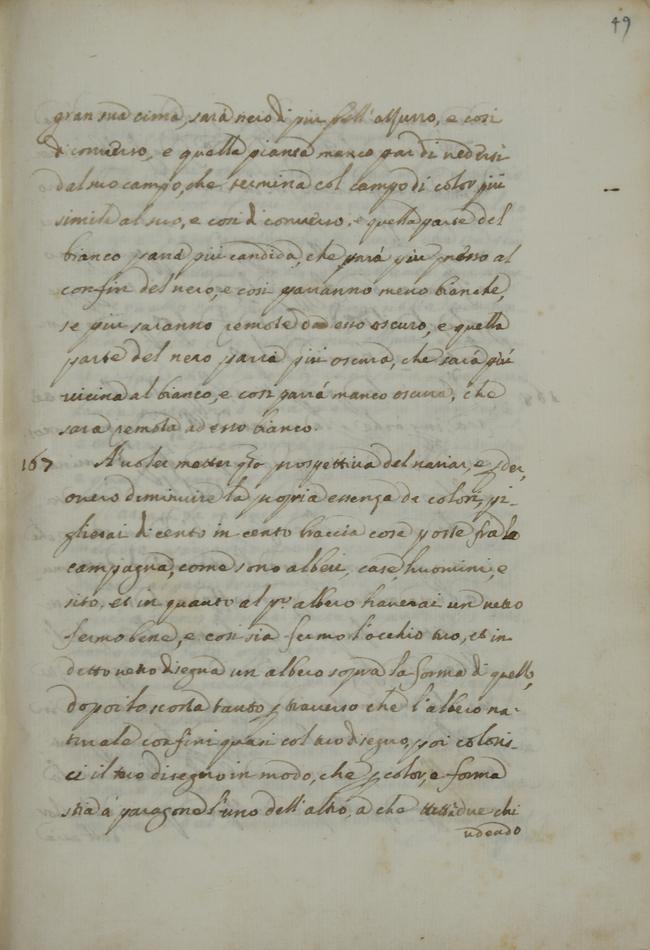 49
gran sua cima, sarà nero di più dell'azurro, e così
di converso, e quella pianta manco par di vedersi
dal suo campo, che termina col campo di color più
simile al suo, e così di converso. e quella parte del
bianco parrà più candida, che sarà più presso al
confin del nero, e così parranno meno bianche,
se più saranno remote da esso oscuro, e quella
parte del nero parrà più oscura, che sarà più
vicina al bianco, e così parrà manco oscura, che
sarà remota ad esso bianco.
167 A voler metter qto prospettiva del variar, e
overo diminuire la propria essenza de colori, pi-
glierai di cento in cento braccia cose poste fra la
campagna, come sono alberi, case, huomini, e
sito, et in quanto al po albero haverai un vetro
fermo bene, e così sia fermo l'occhio tuo, et in
detto vetro disegna un albero sopra la forma di quello,
dopoi lo scosta tanto p traverso che l'albero na-
turale confini quasi col tuo disegno, poi coloris-
ci il tuo disegno in modo, che p color, e forma
stia à paragone l'uno dell'altro, ò che tutti due chi
udendo